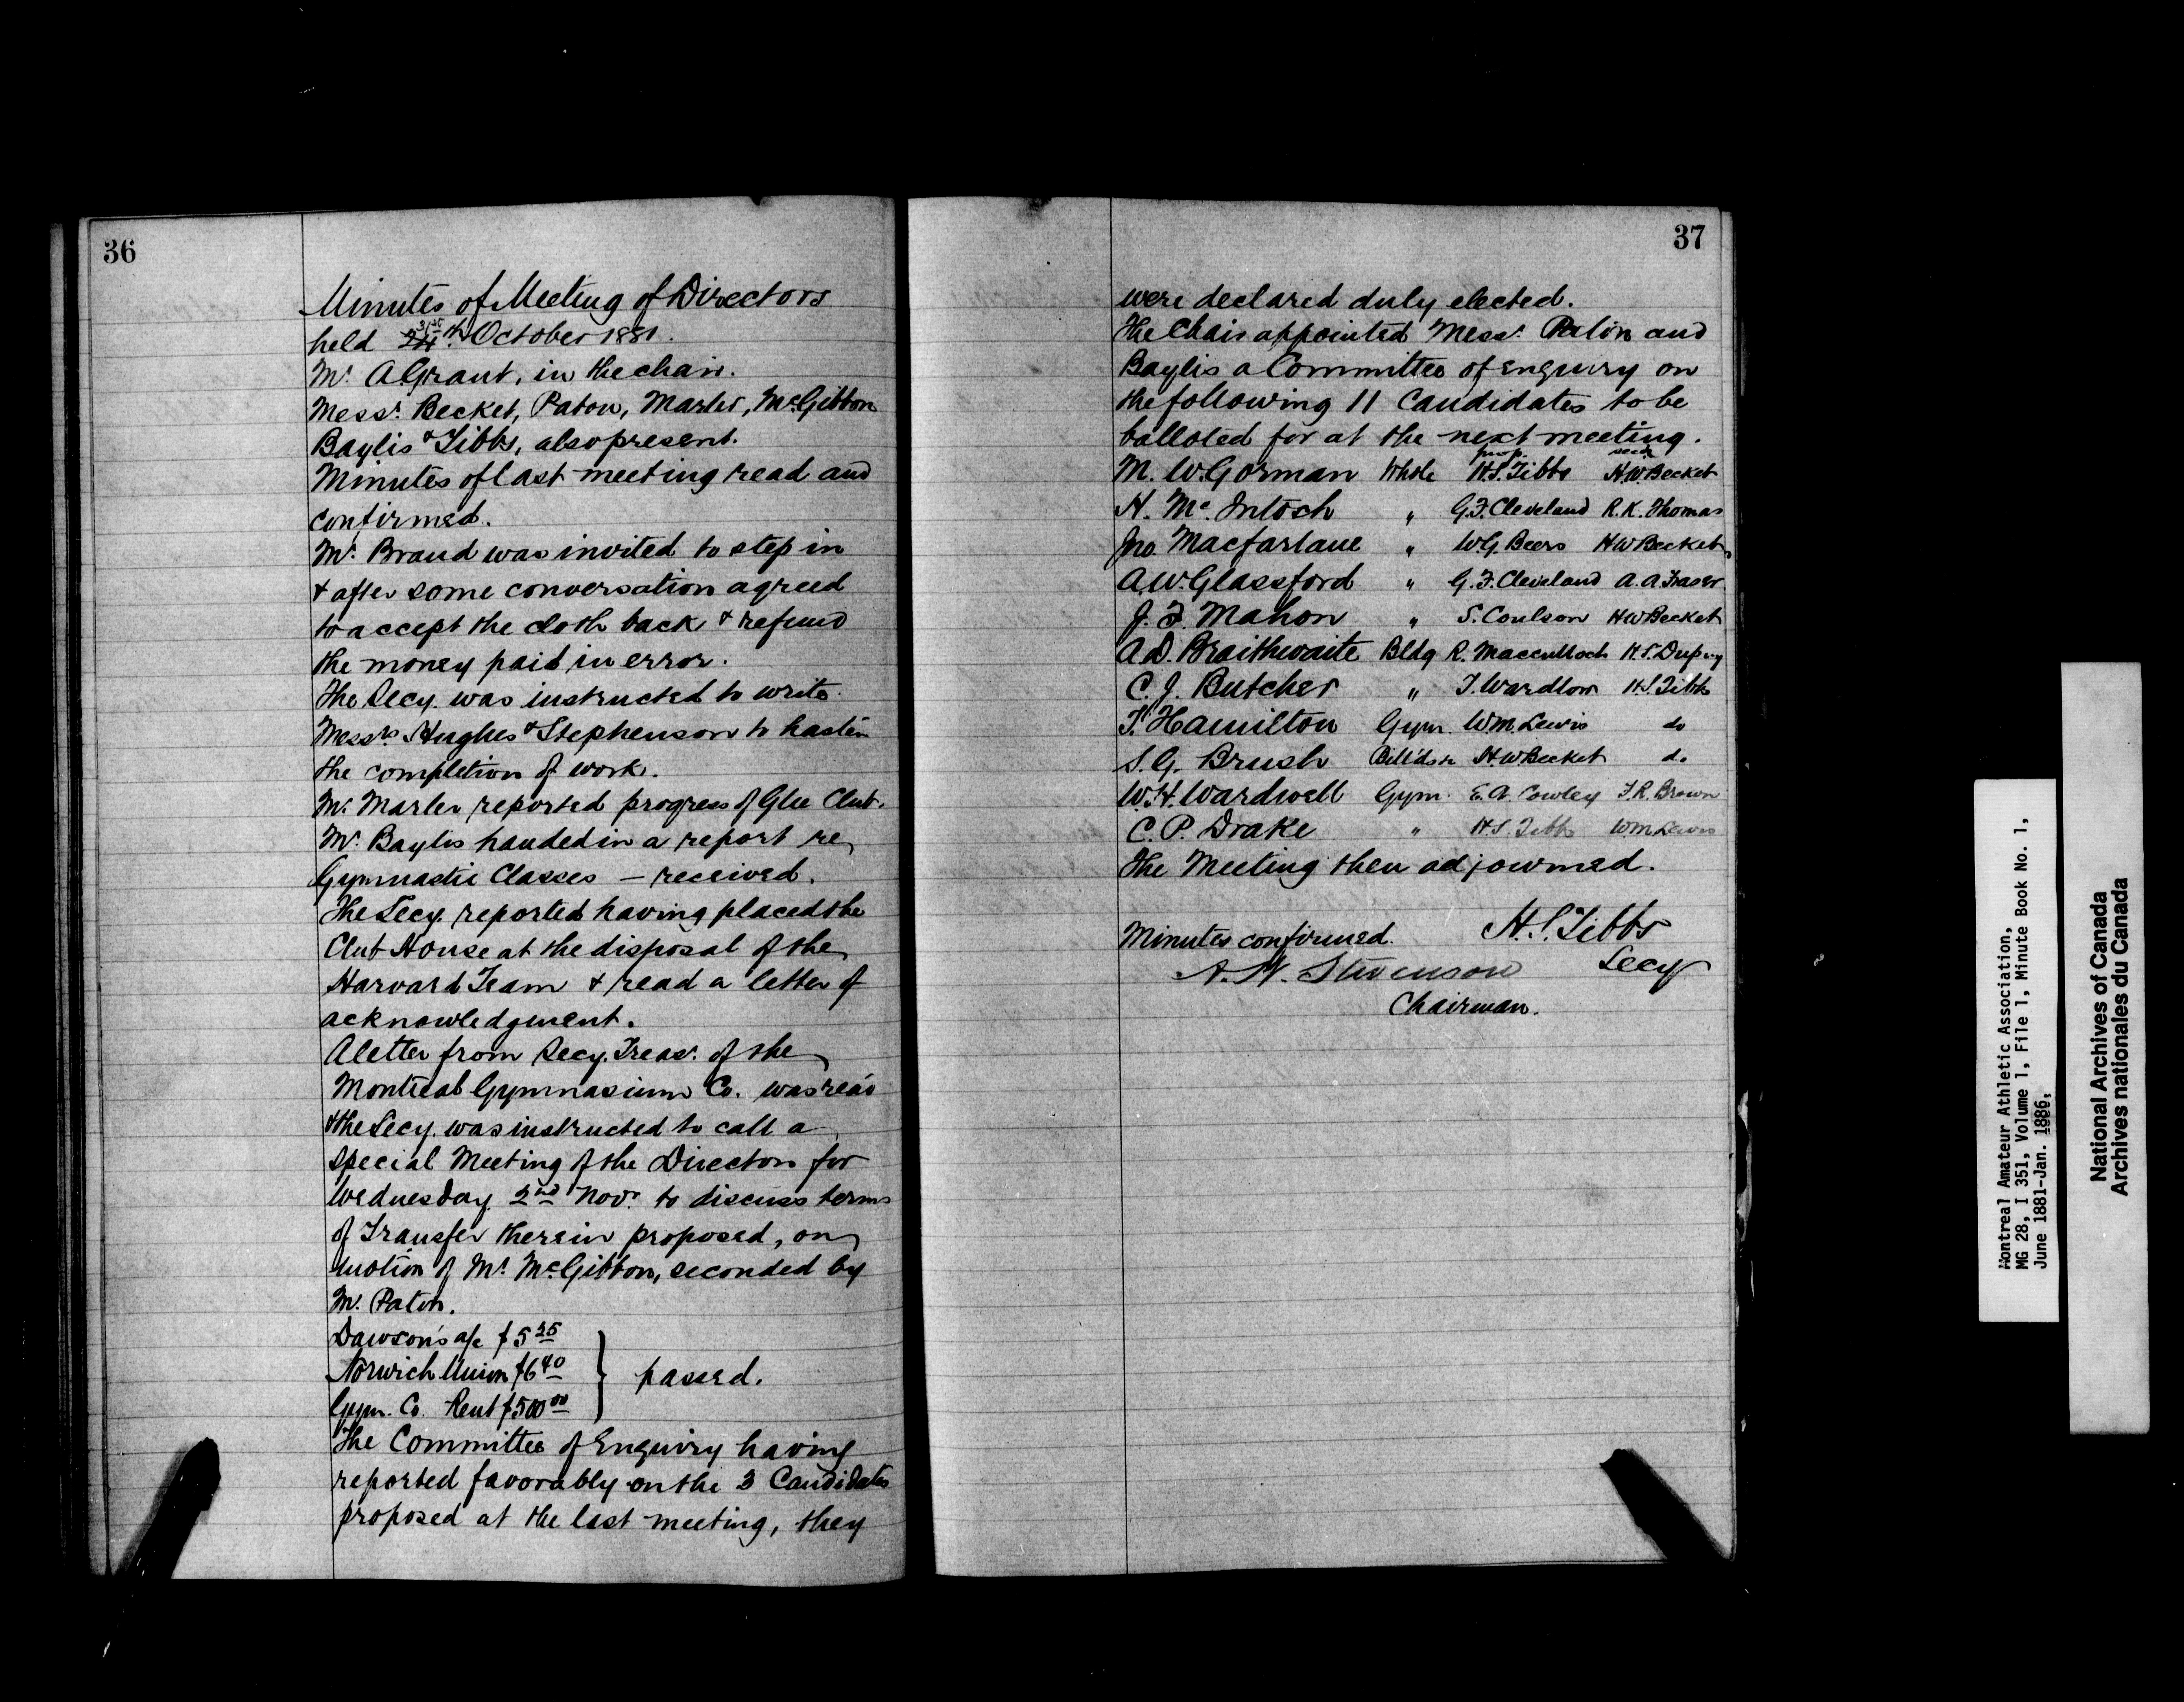 36
Minutes of Meeting of Directors
held 24th 31st October 1881.
Mr. A Grant, in the chair.
Messr. Becket, Paton, Marler, McGibbon
Baylis & Tibbs, also present.
Minutes of last meeting read and
confirmed.
Mr. Brand was invited to step in
& after some conversation agreed
to accept the cloth back & refund
the money paid in error.
The Secy. was instructed to write
Messrs Hughes & Stephenson to hasten
the completion of work.
Mr. Marler reported progress of Glee Club.
Mr. Baylis handed in a report re
Gymnastic Classes — received.
The Secy. reported having placed the
Club House at the disposal of the
Harvard Team & read a letter of
acknowledgment.
A letter from Secy. Treasr. of the
Montreal Gymnasium Co. was read
& the Secy. was instructed to call a
special Meeting of the Directors for
Wednesday 2nd Novr. to discuss terms
of Transfer therein proposed, on
motion of Mr. McGibbon, seconded by
Mr. Paton.
Dawson's a/c $5 25
Norwich Union $6 40 } passed.
Gym. Co. Rent $500 00
The Committee of Enquiry having
reported favorably on the 3 Candidates
proposed at the last meeting, they
37
were declared duly elected.
The Chair appointed Messr. Paton and
Baylis a Committee of Enquiry on
the following 11 Candidates to be
balloted for at the next meeting.
prop. secd
M. W. Gorman Whole H.S. Tibbs H.W. Becket
H. Mc.Intosh " G.F. Cleveland R.K. Thomas
Jno Macfarlane " W.G. Beers H W Becket
A.W. Glassford " G.F. Cleveland A.A. Fraser
J. F. Mahon " S. Coulson H W Becket
A.D. Braithwaite Bldg R. Macculloch H.S. Dupuy
C. J. Butcher " T. Wardlow H.S. Tibbs
T. Hamilton Gym. Wm. Lewis do
S. G. Brush Billds &c H.W Becket do
W.H. Wardwell Gym. E.A. Cowley F.R. Brown
C. P. Drake " H.S. Tibbs Wm. Lewis
The Meeting then adjourned.
Minutes confirmed. H.S. Tibbs
A. H. Stevenson Secy
Chairman.
Montreal Amateur Athletic Association,
MG 28, I 351, Volume 1, File 1, Minute Book No. 1,
June 1881-Jan. 1886,
National Archives of Canada
Archives nationales du Canada